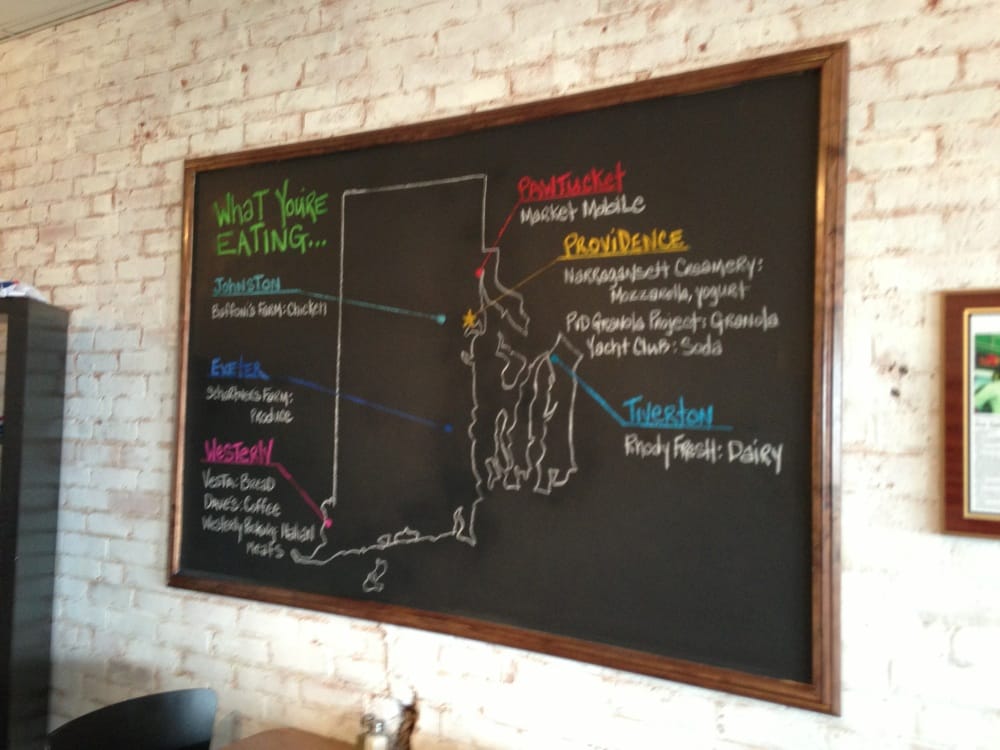 WHAT YOU'RE
EATING...
JOHNSTON
Baffoni's Farm: Chicken
EXETER
Schartner's Farm:
Produce
WESTERLY
Vesta: Bread
Dave's: Coffee
Westerly Packing: Italian
Meats
PAWTUCKET
Market Mobile
PROVIDENCE
Narragansett Creamery:
Mozzarella, yogurt
PVD Granola Project: Granola
Yacht Club: Soda
TIVERTON
Rhody Fresh: Dairy